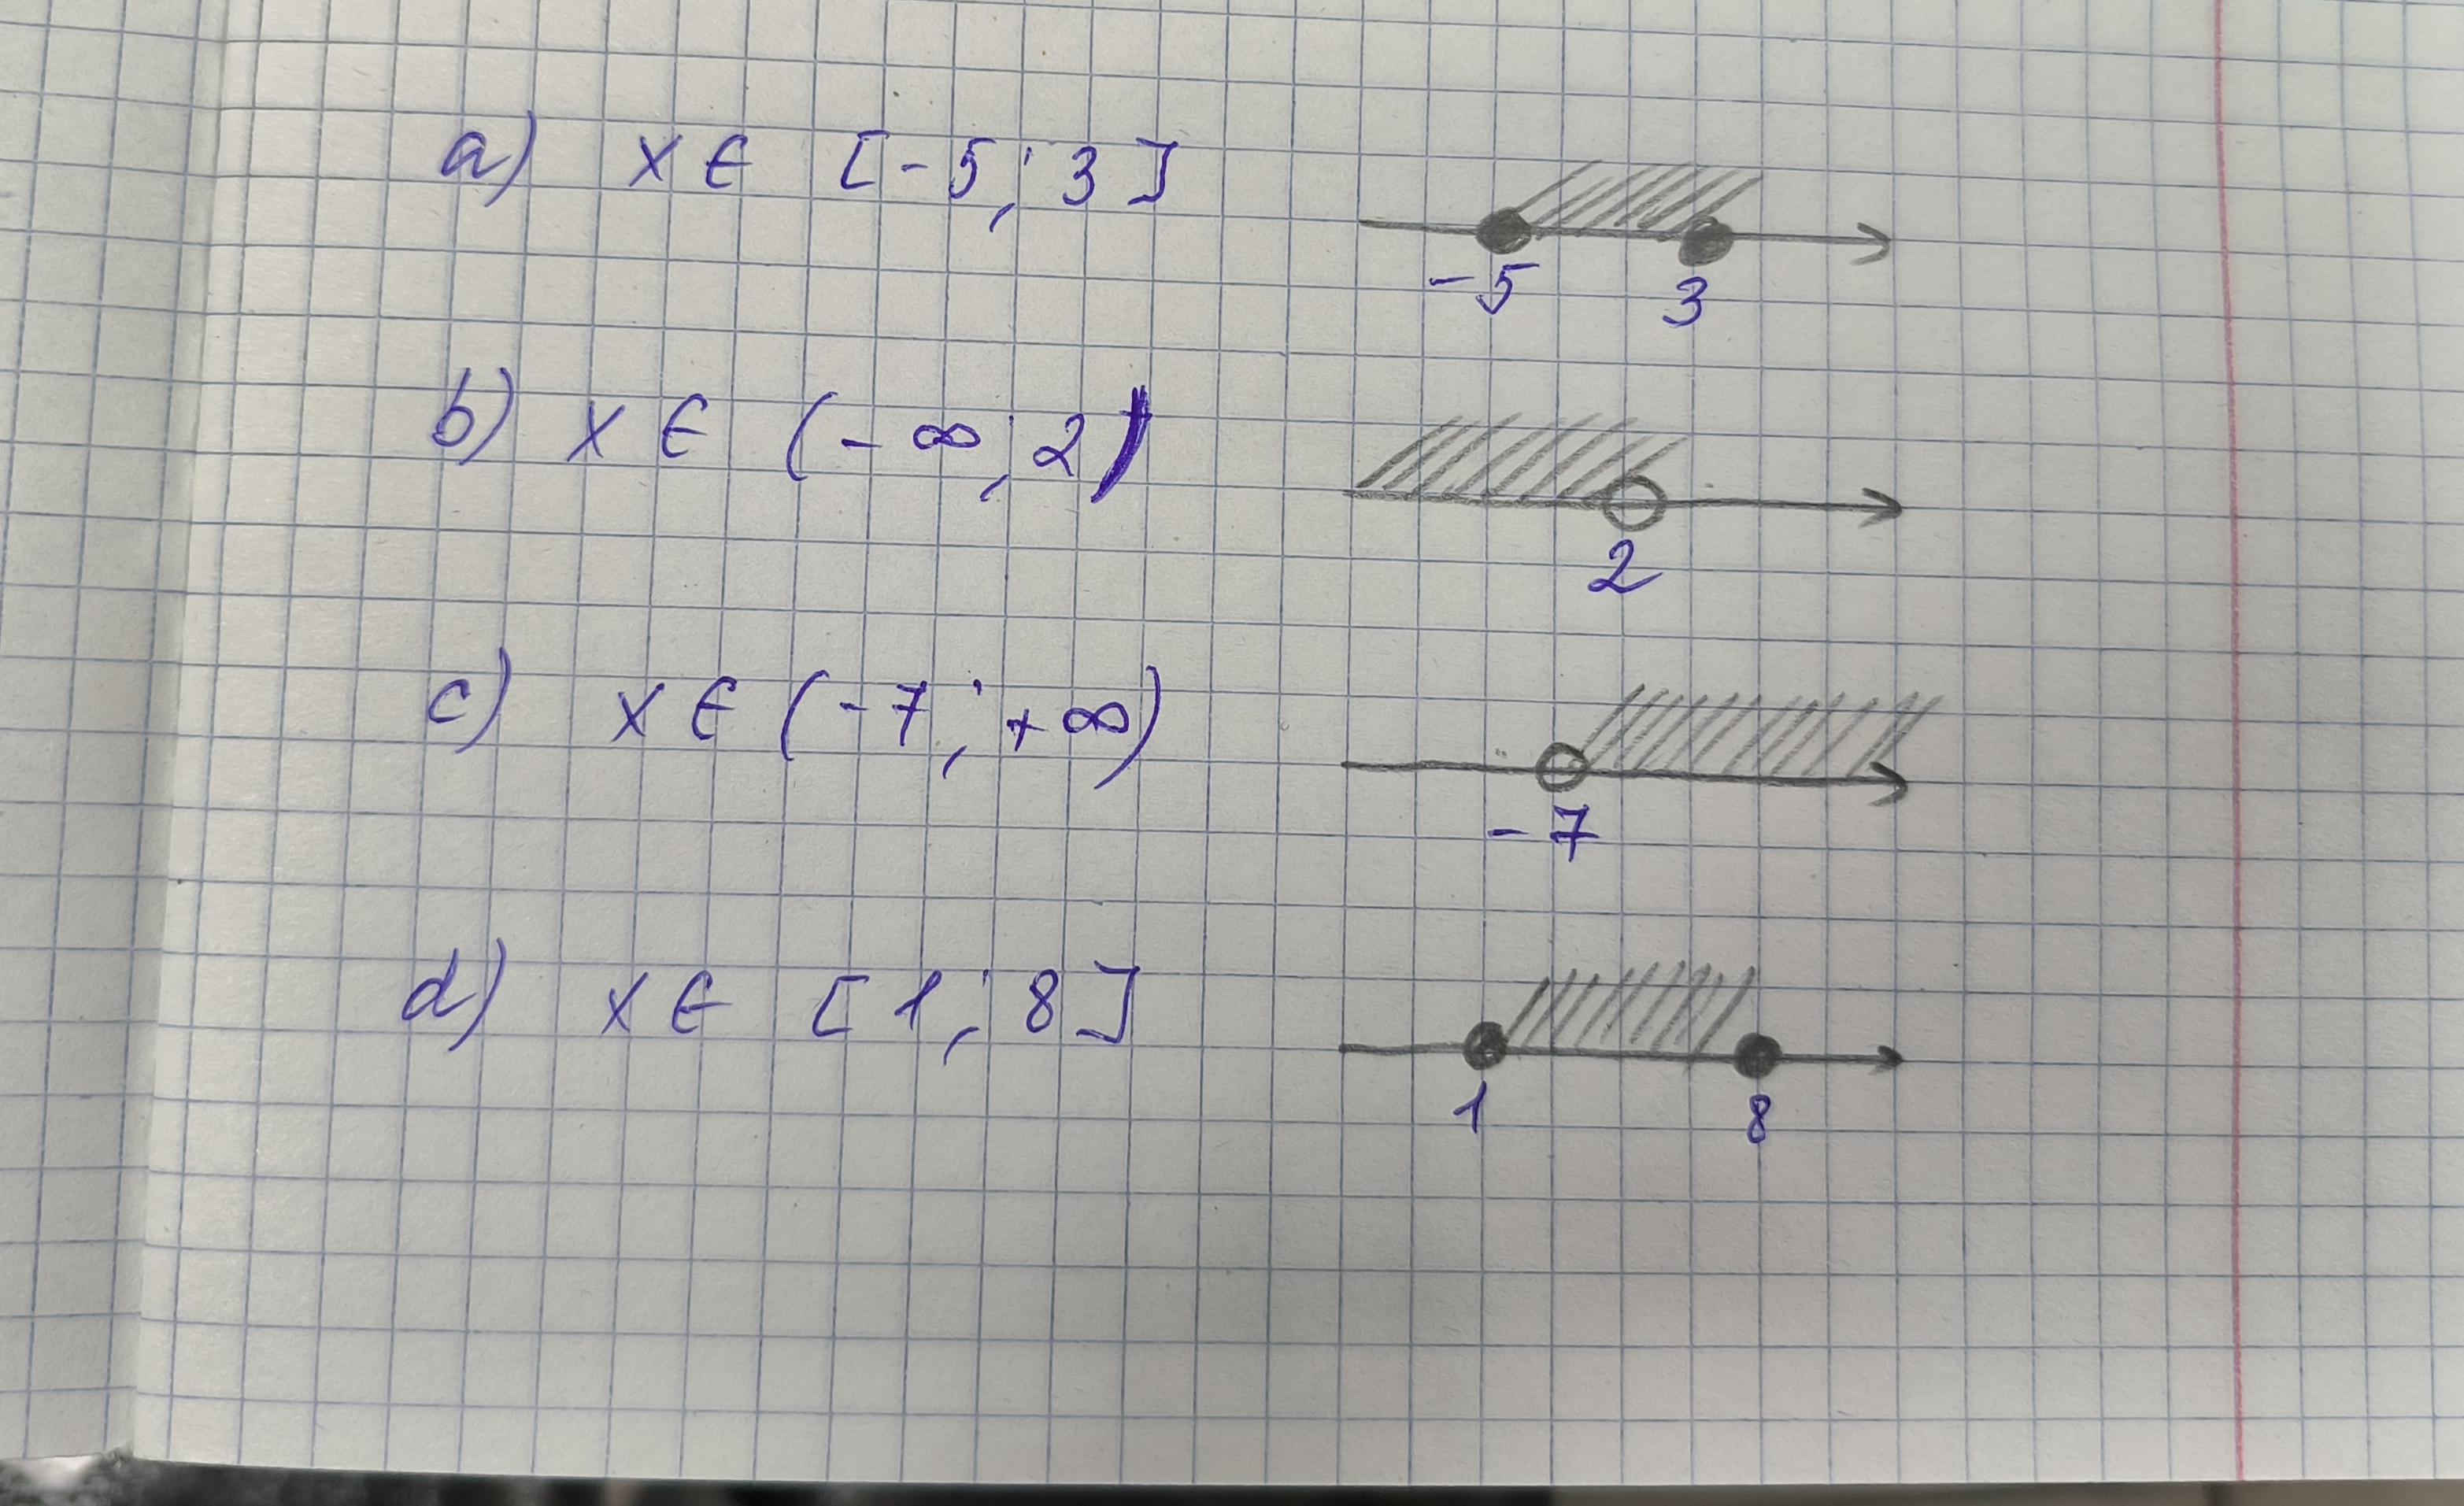 a) x ∈ [-5; 3]
-5 3
b) x ∈ (-∞; 2)
2
c) x ∈ (-7; +∞)
-7
d) x ∈ [1; 8]
1 8